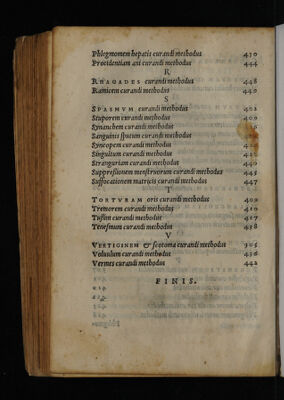 Phlegmonem hepatis curandi methodus 430
Procidentiam ani curandi methodus 444
R
RHAGADES curandi methodus 448
Ramicem curandi methodus 440
S
SPASMVM curandi methodus 402
Stuporem curandi methodus 400
Synanchem curandi methodus
Sanguinis sputum curandi methodus
Syncopem curandi methodus
Singultum curandi methodus
Stranguriam curandi methodus 440
Suppressionem menstruorum curandi methodus 445
Suffocationem matricis curandi methodus 447
T
TORTVRAM oris curandi methodus 409
Tremorem curandi methodus 410
Tussim curandi methodus 417
Tenesmum curandi methodus 438
V
VERTIGINEM & scotoma curandi methodus 395
Voluulum curandi methodus 436
Vermes curandi methodus 442
FINIS.